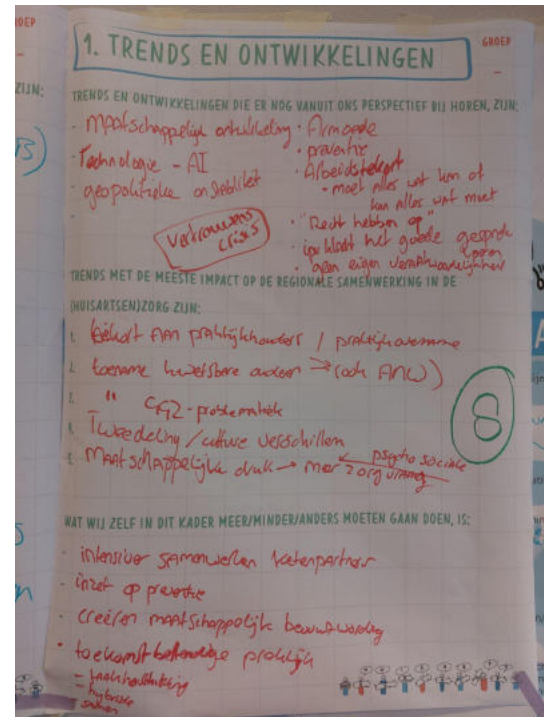 1. TRENDS EN ONTWIKKELINGEN
GROEP
TRENDS EN ONTWIKKELINGEN DIE ER NOG VANUIT ONS PERSPECTIEF BIJ HOREN, ZIJN:
- Maatschappelijke ontwikkeling
- Technologie - AI
- geopolitieke
-
Vertrouwens
crisis
· Armoede
· preventie
· Arbeidstekort
- moet alles wat kan of
kan alles wat moet
· "Recht hebben op"
· het goede gesprek
voeren
· geen eigen verantwoordelijkheid
TRENDS MET DE MEESTE IMPACT OP DE REGIONALE SAMENWERKING IN DE
(HUISARTSEN)ZORG ZIJN:
1. tekort aan praktijkhouders / praktijkovername
2. toename kwetsbare ouderen → (ook ANW)
3. " GGZ-problematiek
4. Tweedeling / cultuur verschillen
5. Maatschappelijke druk → meer psycho sociale
zorgvraag
8
WAT WIJ ZELF IN DIT KADER MEER/MINDER/ANDERS MOETEN GAAN DOEN, IS:
- intensiever samenwerken ketenpartners
- inzet op preventie
- creëren maatschappelijk bewustwording
· toekomstbestendige praktijk
- hybride
GROEP
ZIJN: